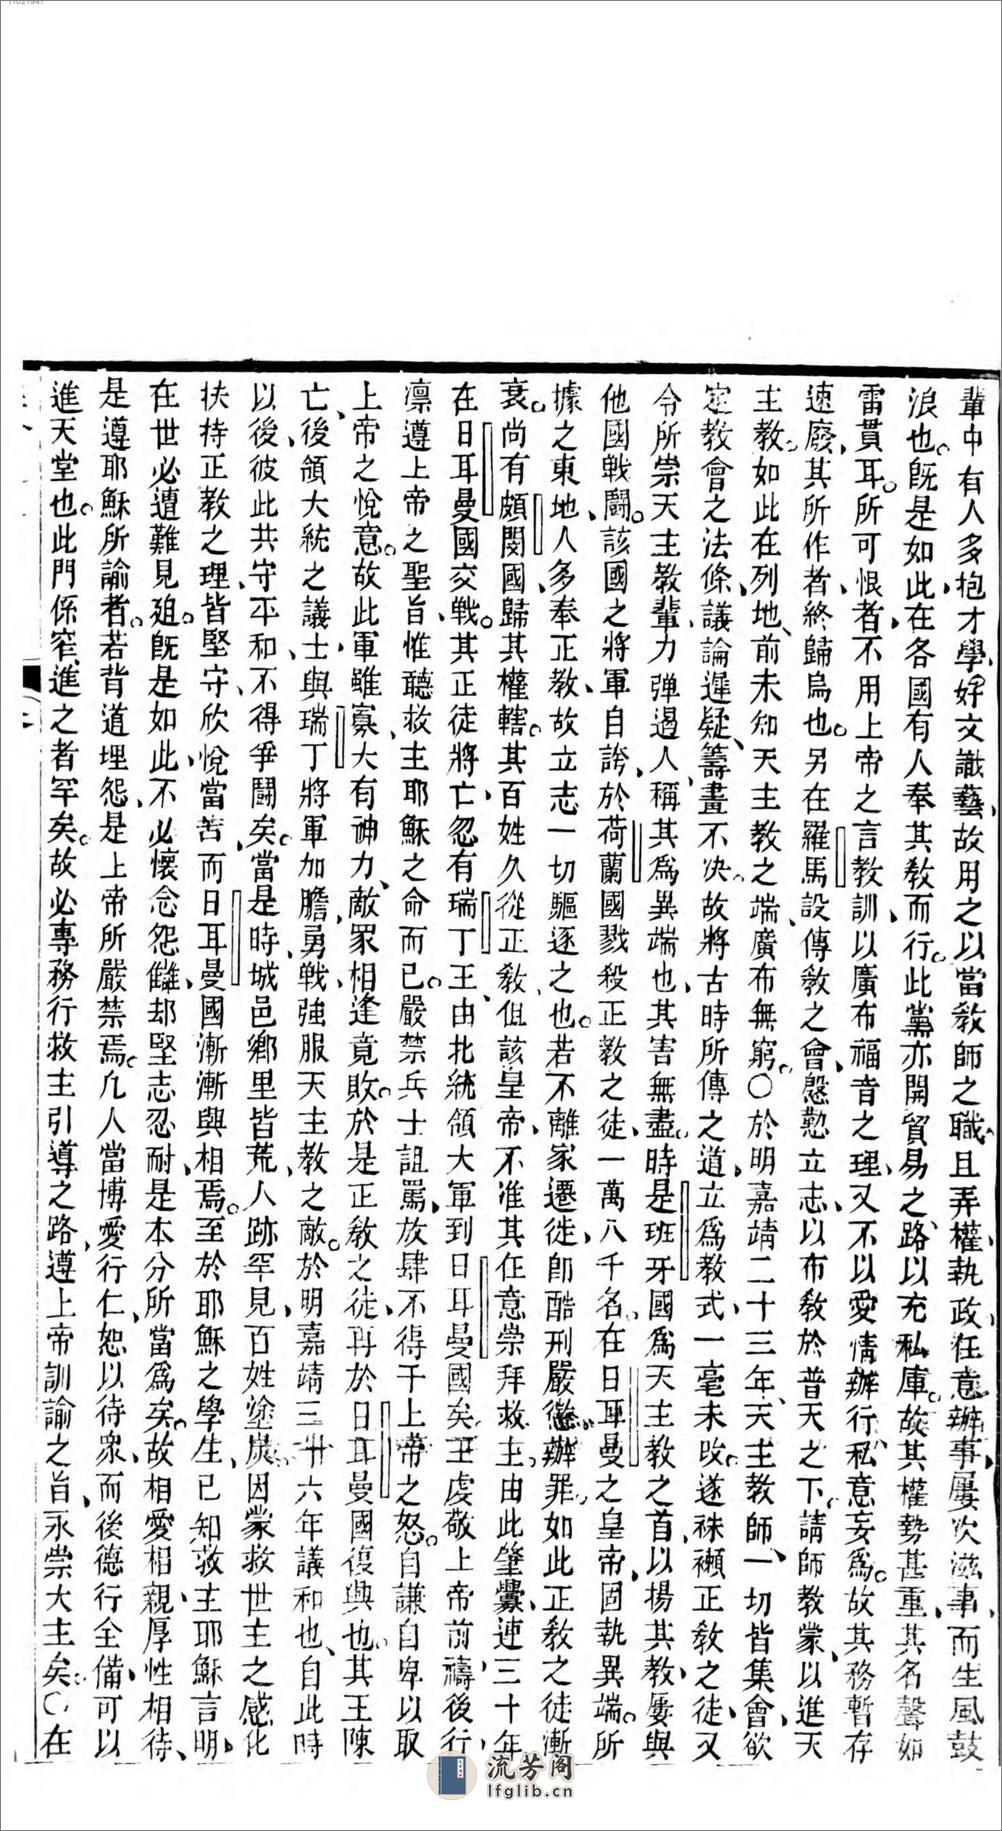 11021947
輩中有人多抱才學、好文識藝、故用之以當教師之職、且弄權、執政任意辦事、屢次滋事、而生風鼓
浪也。旣是如此、在各國有人奉其敎而行。此黨亦開貿易之路、以充私庫。故其權勢甚重、其名聲如
雷貫耳。所可恨者、不用上帝之言教訓、以廣布福音之理、又不以愛情辦行、私意妄爲。故其務暫存
速廢、其所作者終歸烏也。另在羅馬設傳敎之會、慇懃立志、以布敎於普天之下。請師教蒙、以進天
主教。如此在列地、前未知天主教之端、廣布無窮。〇於明嘉靖二十三年、天主教師、一切皆集會、欲
定教會之法條、議論遲疑、籌畫不决。故將古時所傳之道、立爲教式、一毫未改。遂袾襰正敎之徒、又
令所崇天主教輩、力弹過人、稱其爲異端也、其害無盡。時是班牙國爲天主教之首、以揚其教、屢與
他國戰鬪。該國之將軍自誇、於荷蘭國戮殺正教之徒、一萬八千名。在日耳曼之皇帝、固執異端。所
據之東地、人多奉正教、故立志一切驅逐之也。若不離家遷徙、卽酷刑嚴懲辦罪。如此正敎之徒漸
衰。尚有頗閔國歸其權轄。其百姓久從正敎、但該皇帝、不准其任意崇拜救主。由此肇釁、連三十年
在日耳曼國交戰。其正徒將亡、忽有瑞丁王、由北統領大軍、到日耳曼國矣。王虔敬上帝、前禱後行、
凛遵上帝之聖旨、惟聽救主耶穌之命而已。嚴禁兵士詛罵、放肆不得干上帝之怒。自謙自卑、以取
上帝之悅意。故此軍雖寡、大有神力、敵眾相逢竟敗。於是正敎之徒、再於日耳曼國復興也。其王陳
亡、後領大統之議士、與瑞丁將軍加膽、勇戰、強服天主教之敵。於明嘉靖三卅六年議和也、自此時
以後、彼此共守平和、不得爭鬪矣。當是時城邑鄉里皆荒、人跡罕見、百姓塗炭。因蒙救世主之感化
扶持正教之理、皆堅守、欣悅當苦、而日耳曼國漸漸與相焉。至於耶穌之學生、已知救主耶穌言明、
在世必遭難見廹。旣是如此、不必懷念怨讎、却堅志忍耐、是本分所當爲矣。故相愛相親、厚性相待、
是遵耶穌所諭者。若背道埋怨、是上帝所嚴禁焉。凢人當博愛行仁、恕以待衆、而後德行全備、可以
進天堂也。此門係窄、進之者罕矣。故必專務行救主引導之路、遵上帝訓諭之旨、永崇大主矣。〇在
流芳阁
lfglib.cn